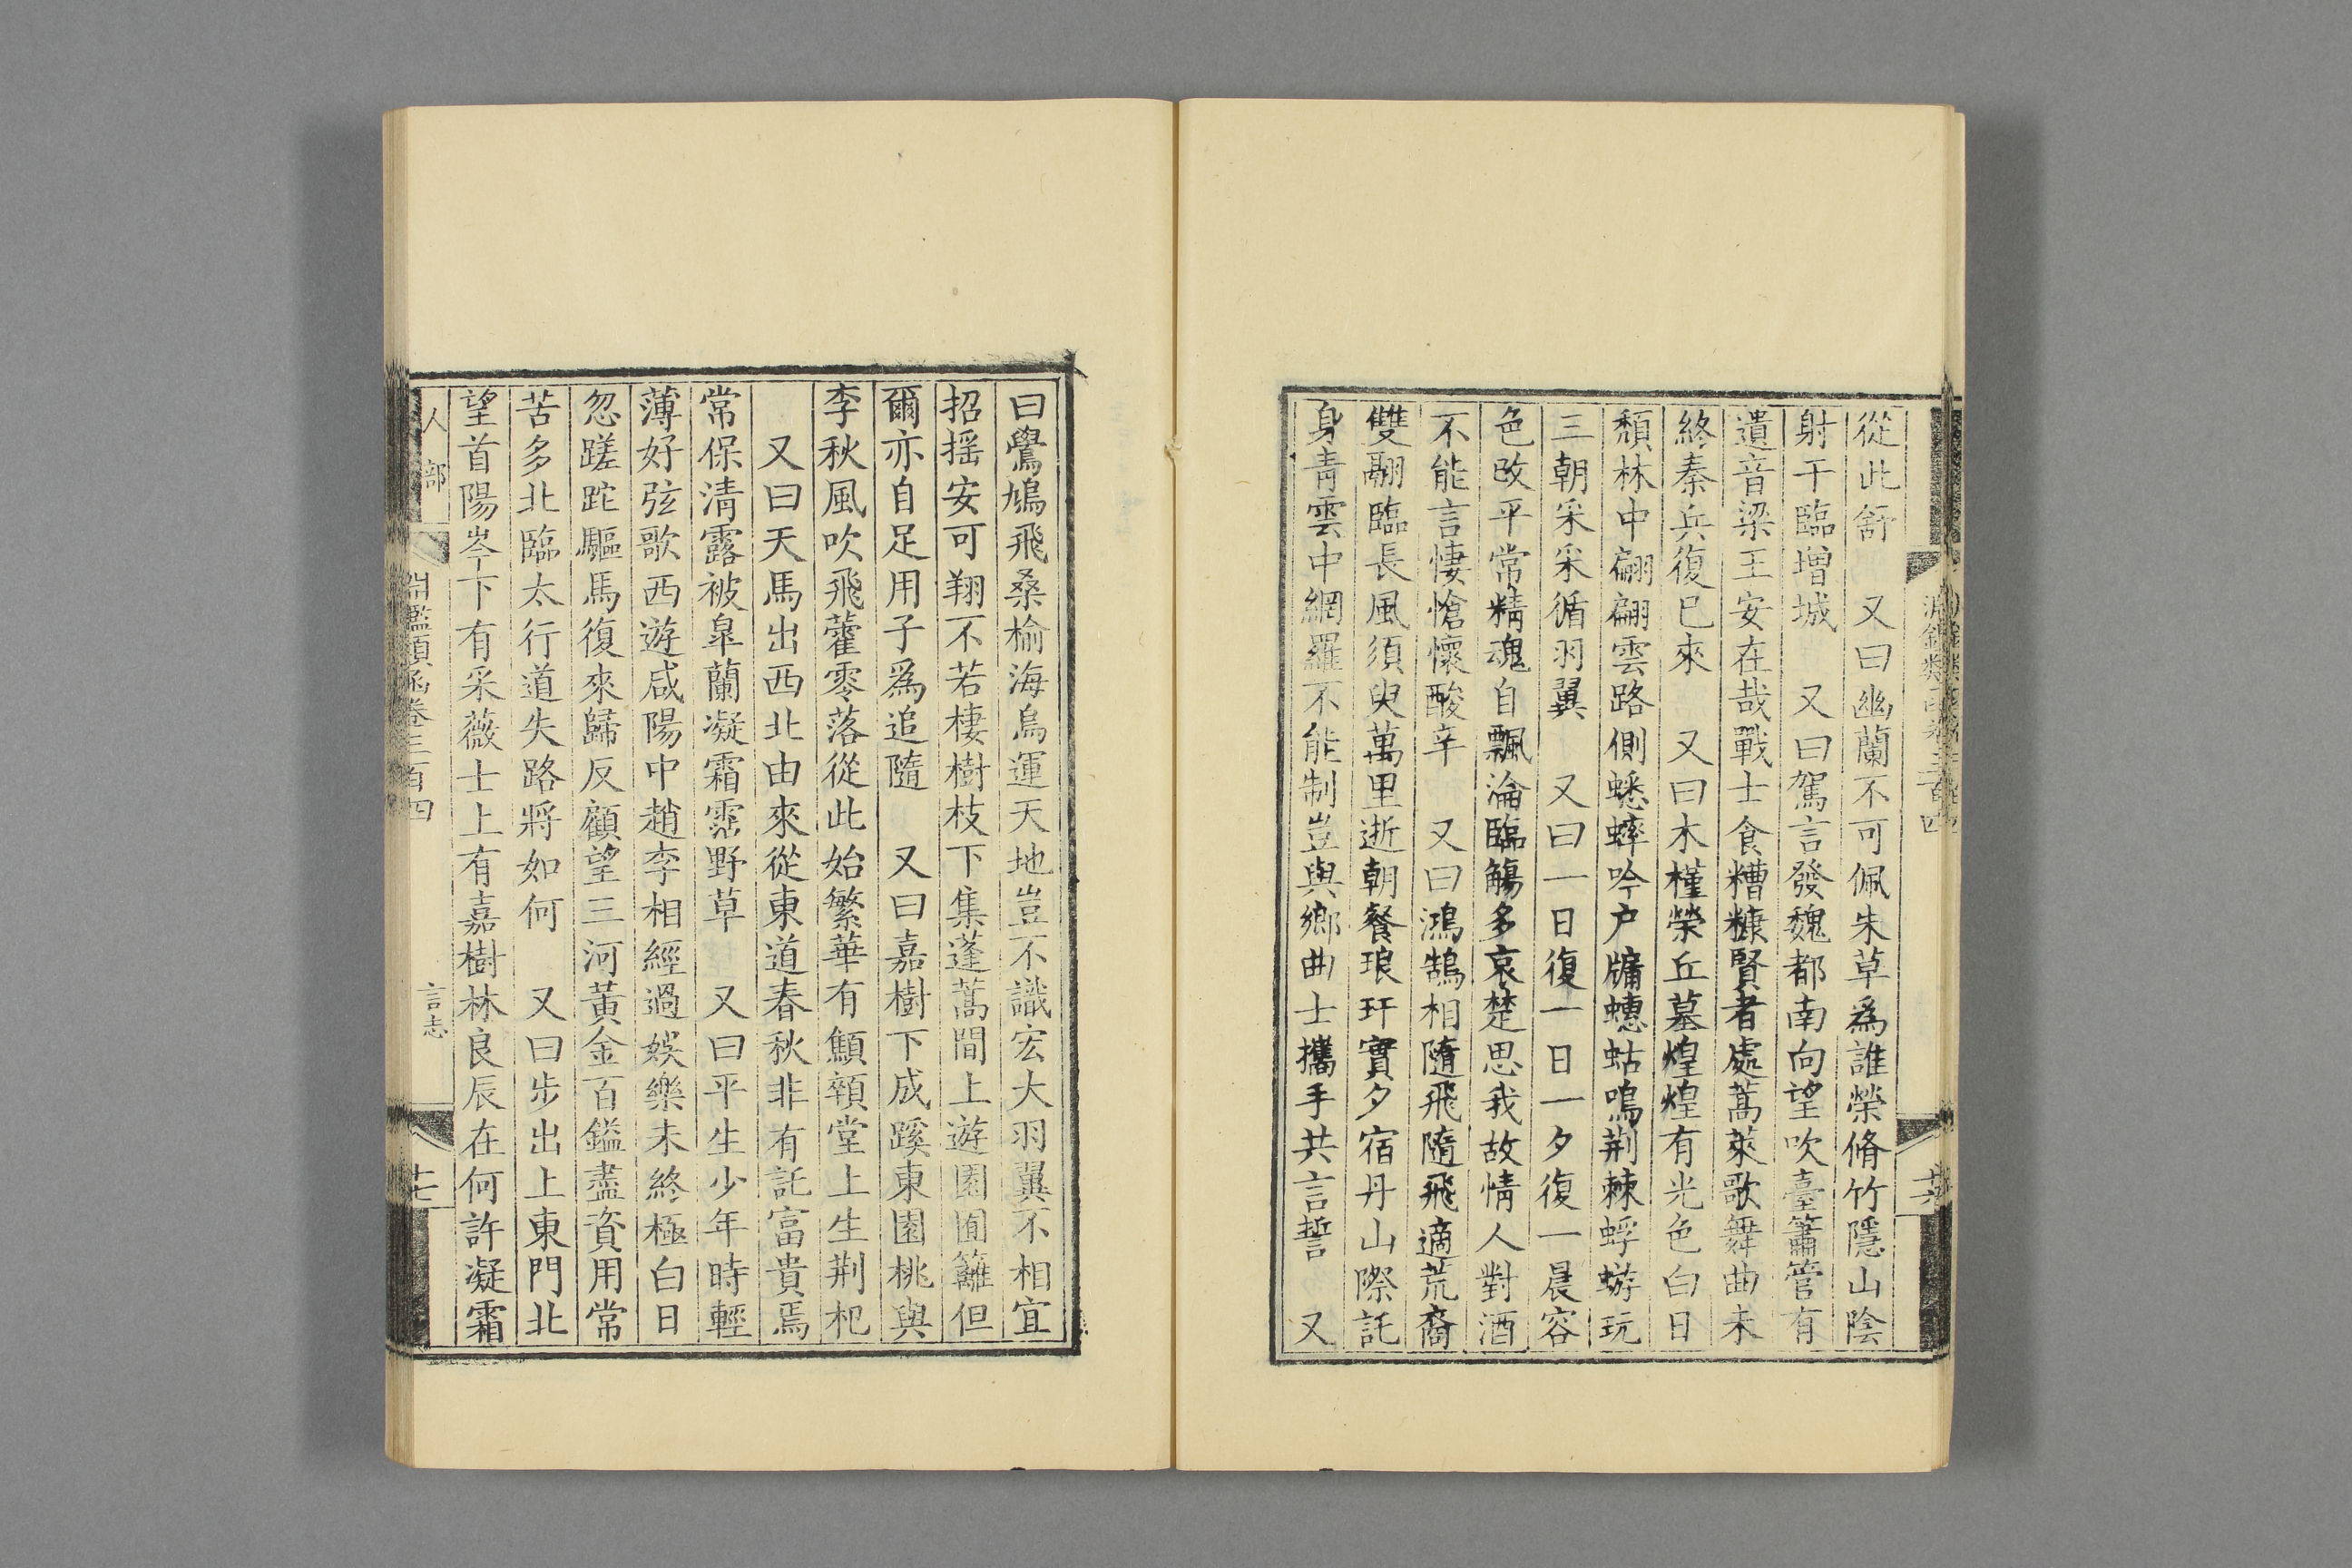 從此舒　又曰幽蘭不可佩朱草爲誰榮脩竹隱山陰
射干臨增城　又曰駕言發魏都南向望吹臺簫管有
遺音梁王安在哉戰士食糟糠賢者處蒿萊歌舞曲未
終秦兵復已來　又曰木槿榮丘墓煌煌有光色白日
頹林中翩翩雲路側蟋蟀吟户牖蟪蛄鳴荆棘蜉蝣玩
三朝采采循羽翼　又曰一日復一日一夕復一晨容
色改平常精魂自飄淪臨觴多哀楚思我故情人對酒
不能言悽愴懷酸辛　又曰鴻鵠相隨飛隨飛適荒裔
雙翮臨長風須臾萬里逝朝餐琅玕實夕宿丹山際託
身青雲中網羅不能制豈與鄉曲士攜手共言誓　又
曰鷽鳩飛桑榆海鳥運天地豈不識宏大羽翼不相宜
招摇安可翔不若棲樹枝下集蓬蒿間上遊園囿籬但
爾亦自足用子爲追隨　又曰嘉樹下成蹊東園桃與
李秋風吹飛藿零落從此始繁華有顦顇堂上生荆杞
又曰天馬出西北由來從東道春秋非有託富貴焉
常保清露被皐蘭凝霜霑野草　又曰平生少年時輕
薄好弦歌西遊咸陽中趙李相經過娛樂未終極白日
忽蹉跎驅馬復來歸反顧望三河黃金百鎰盡資用常
苦多北臨太行道失路將如何　又曰步出上東門北
望首陽岑下有采薇士上有嘉樹林良辰在何許凝霜
人部　淵鑑類函卷三百四　言志　十七